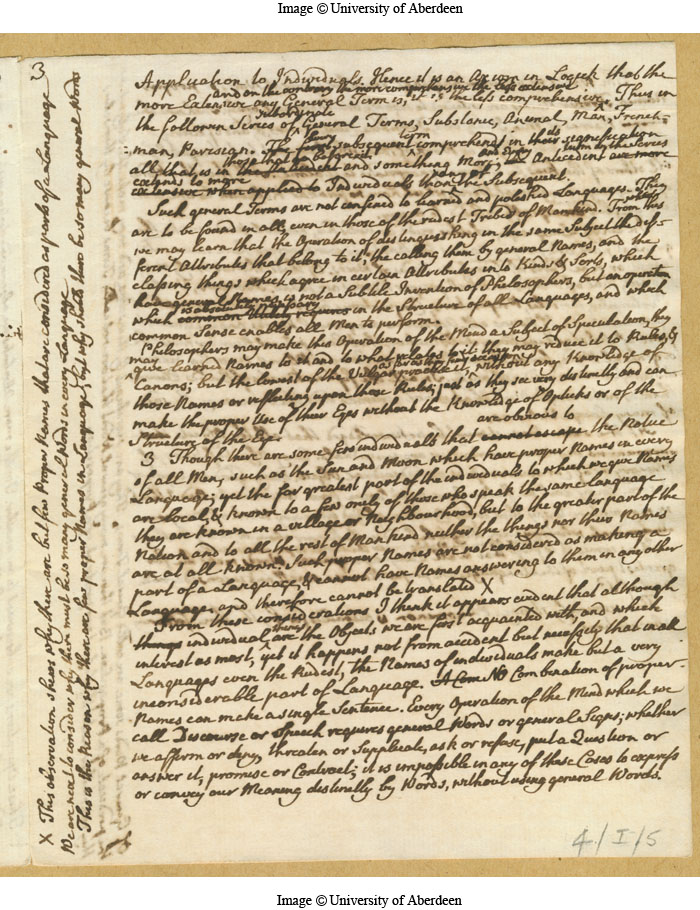 Image © University of Aberdeen
3
Application to Individuals. Hence it is an Axiom in Logick that the
and on the contrary the more comprehensive the less extensive
more Extensive any General Term is, it is the less comprehensive. Thus in
subordinate
the following Series of General Terms, Substance, Animal, Man, French-
man, Parisian. The every subsequent term comprehends in their signification
all that is in those that and something more; and every Antecedent
extends to more Individuals than the Subsequent.
Such general Terms are not confined to learned and polished Languages. They
are to be found in all, even in those of the rudest Tribes of Mankind. From this
we may learn that the Operation of distinguishing in the same Subject the dif-
ferent Attributes that belong to it; the calling them by general Names, and the
classing things which agree in certain Attributes into Kinds & Sorts, which
have general Names is not a Subtile Invention of Philosophers, but an operation
which is absolutely necessary in the Structure of all Languages, and which
common Sense enables all Men to perform.
Philosophers may make this Operation of the Mind a Subject of Speculation, they
may give learned Names to it and to what relates to it; they may reduce it to Rules &
Canons; but the lowest of the Vulgar practice it, without any Knowledge of
those Names or reflecting upon those Rules; just as they see very distinctly and can
make the proper Use of their Eyes without the Knowledge of Opticks or of the
Structure of the Eye.
are obvious to
3 Though there are some few individuals that cannot escape the Notice
of all Men, such as the Sun and Moon which have proper Names in every
Language; yet the far greatest part of the individuals to which we give Names
are Local, & known to a few onely of those who speak the same Language
they are known in a village or Neighbourhood, but to the greater part of the
Nation and to all the rest of Mankind neither the things nor their Names
are at all known. Such proper Names are not considered as making a
part of a Language, & cannot have Names answering to them in any other
Language, and therefore cannot be translated X
From these considerations I think it appears evident that although
things individual are the Objects we are first acquainted with, and which
interest us most, yet it happens not from accident but necessity that in all
Languages even the Rudest, the Names of individuals make but a very
inconsiderable part of Language. A Com No Combination of proper
Names can make a single Sentence. Every Operation of the Mind which we
call Discourse or Speech requires general Words or general Signs; whether
we affirm or deny, threaten or Supplicate, ask or refuse, put a Question or
answer it, promise or Contract; it is impossible in any of these Cases to express
or convey our Meaning distinctly by Words, without using general Words.
X This observation shews why there are but few Proper Names that are considered as parts of a Language
We are next to consider why there must be so many general Words in every Language
This is the Reason why there are few proper Names in Language; but why should there be so many general Words
4/I/5
Image © University of Aberdeen